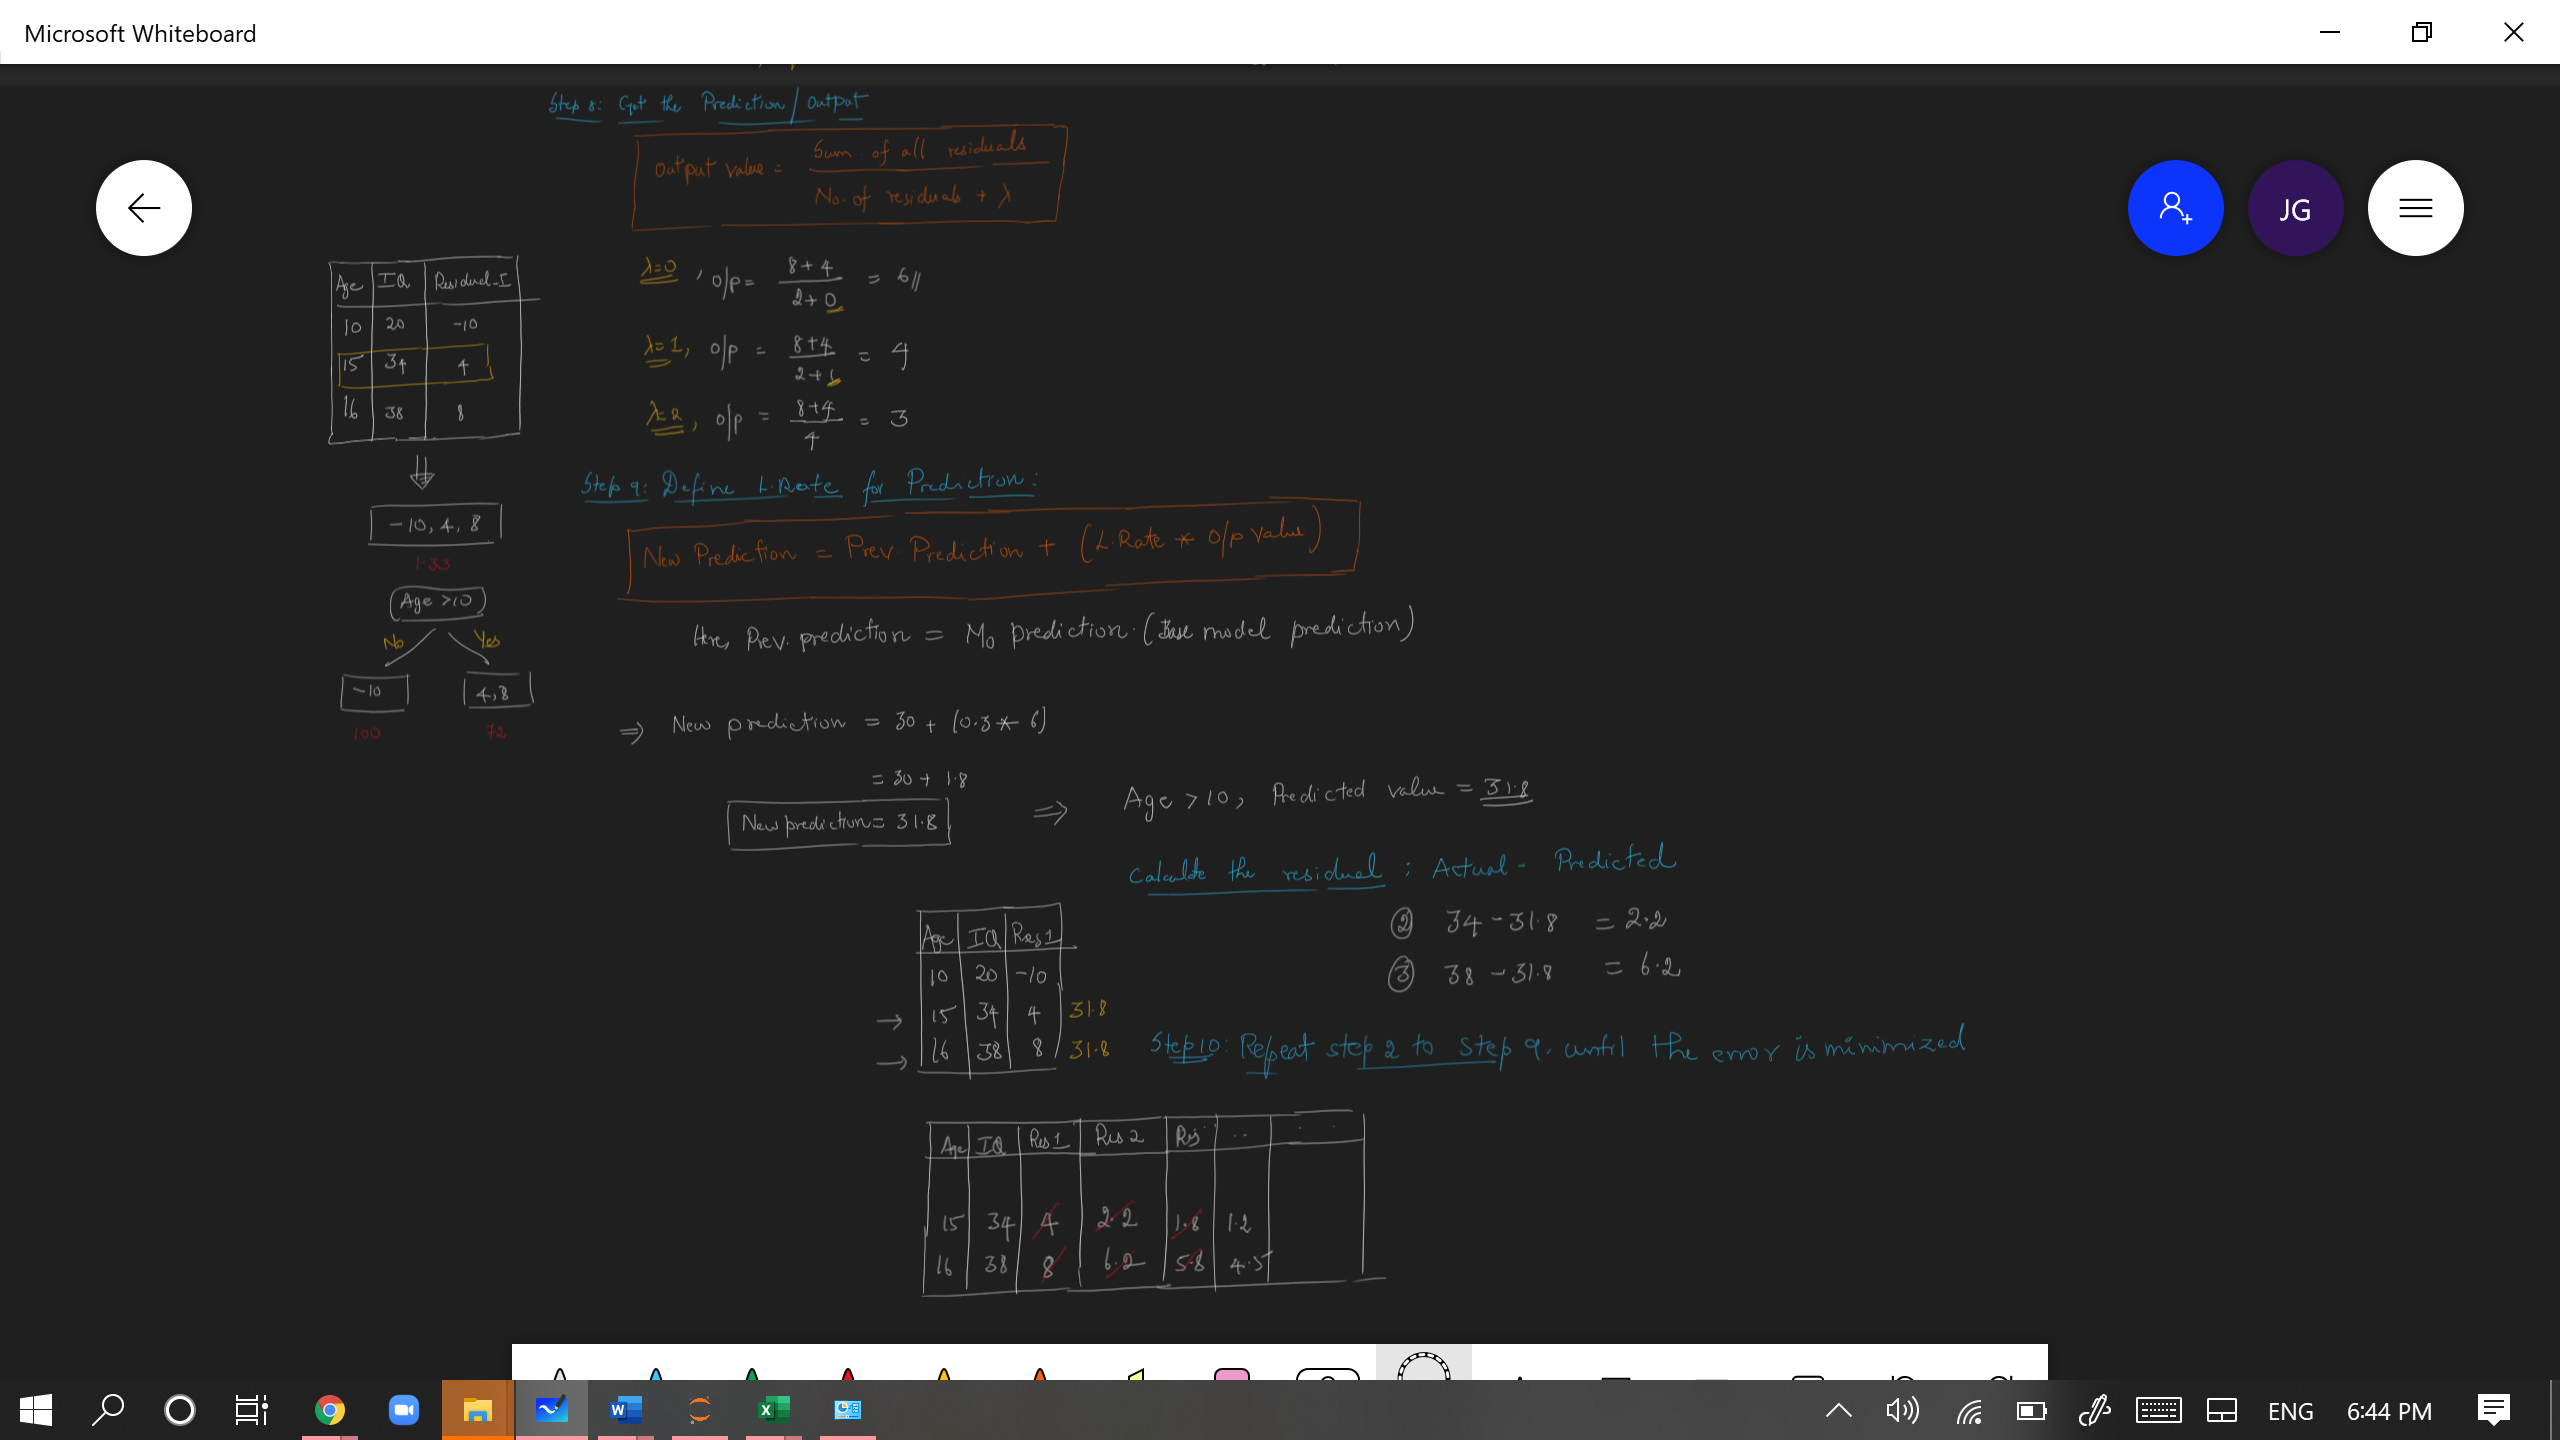 Microsoft Whiteboard
Step 8: Get the Prediction/Output
Output value = Sum of all residuals
No. of residuals + λ
JG
Age IQ Residual-I
10 20 -10
15 34 4
16 38 8
λ=0, o/p = 8+4 / 2+0 = 6//
λ=1, o/p = 8+4 / 2+1 = 4
λ=2, o/p = 8+4 / 4 = 3
-10, 4, 8
1.33
Age >10
No Yes
-10 4,8
100 72
Step 9: Define L.Rate for Prediction:
New Prediction = Prev. Prediction + (L.Rate * o/p value)
Here, Prev. prediction = M0 prediction. (Base model prediction)
⇒ New prediction = 30 + (0.3 * 6)
= 30 + 1.8
New prediction = 31.8
⇒ Age >10, Predicted value = 31.8
Calculate the residual : Actual - Predicted
② 34 - 31.8 = 2.2
③ 38 - 31.8 = 6.2
Age IQ Res1
10 20 -10
→ 15 34 4 31.8
→ 16 38 8 31.8
Step 10: Repeat step 2 to Step 9, until the error is minimized
Age IQ Res1 Res 2 Res .. . .
15 34 4 2.2 1.8 1.2
16 38 8 6.2 5.8 4.5
ENG 6:44 PM